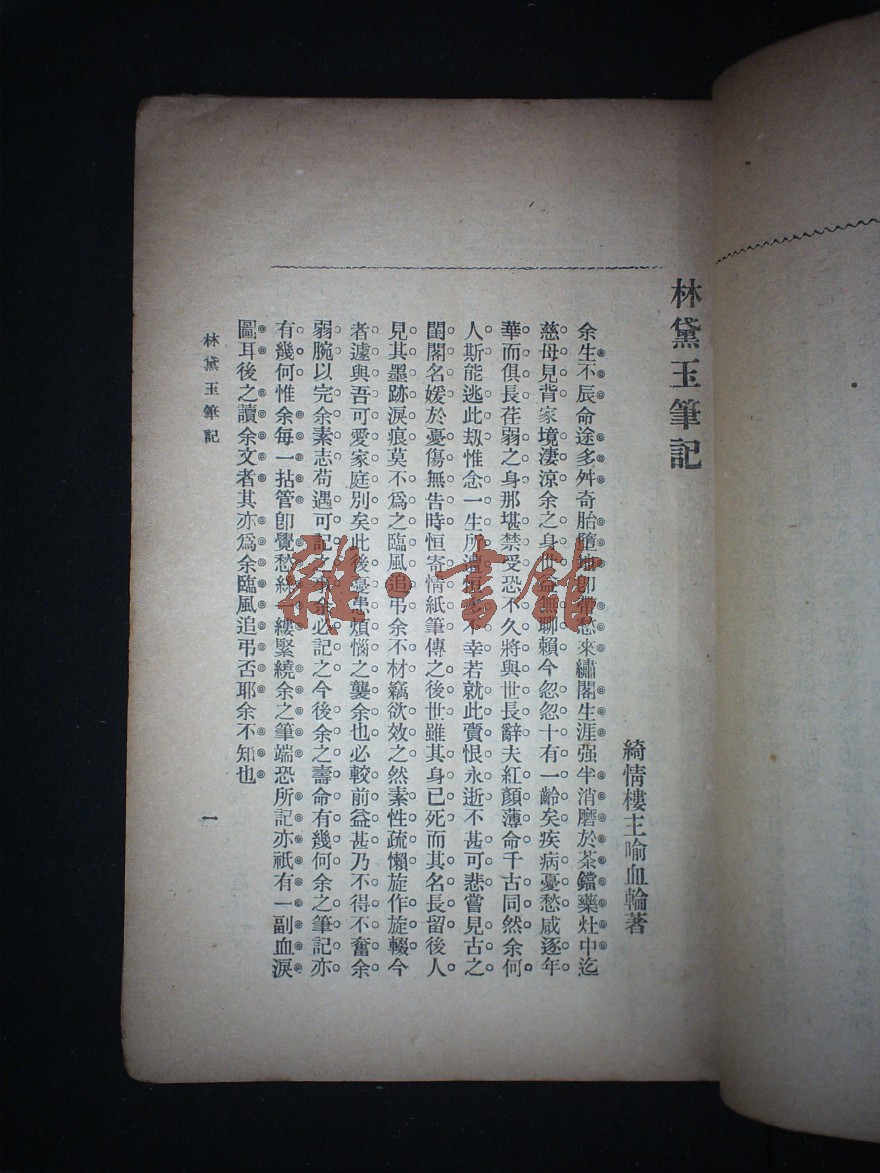 林黛玉筆記
綺情樓主喻血輪著
余生不辰命途多舛奇胎墮地卽帶愁來繡閣生涯强半消磨於茶鐺藥灶中迄
慈母見背家境淒涼余之身世益無聊賴今忽忽十有一齡矣疾病憂愁咸逐年
華而俱長荏弱之身那堪禁受恐不久將與世長辭夫紅顏薄命千古同然余何
人斯能逃此劫惟念一生所遭恒多不幸若就此賫恨永逝不甚可悲嘗見古之
閨閣名媛於憂傷無告時恒寄情紙筆傳之後世雖其身已死而其名長留後人
見其墨跡淚痕莫不爲之臨風追弔余不材竊欲效之然素性疏懶旋作旋輟今
者遽與吾可愛家庭別矣此後憂患煩惱之襲余也必較前益甚乃不得不奮余
弱腕以完余素志苟遇可記之事余必記之今後余之壽命有幾何余之筆記亦
有幾何惟余每一拈管卽覺愁絲一縷緊繞余之筆端恐所記亦祇有一副血淚
圖耳後之讀余文者其亦爲余臨風追弔否耶余不知也
林黛玉筆記
一
雜·書館